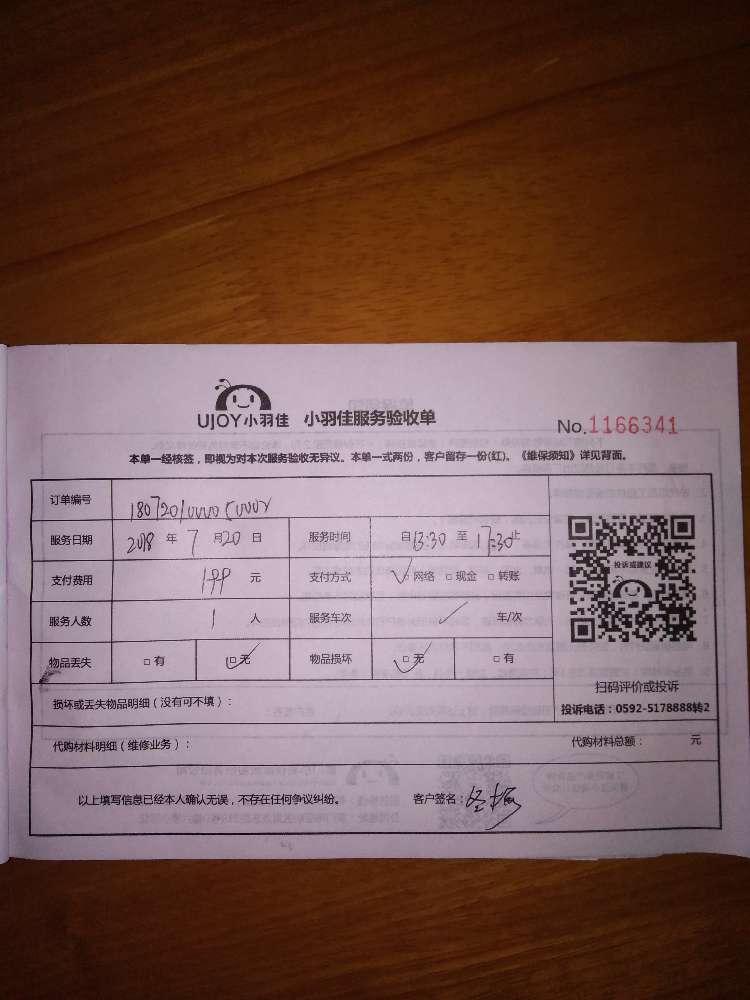 UJOY小羽佳 小羽佳服务验收单
No.1166341
本单一经核签，即视为对本次服务验收无异议。本单一式两份，客户留存一份(红)。《维保须知》详见背面。
订单编号
服务日期 2018 年 7 月 20 日 服务时间 自 13:30 至 17:30 止
支付费用 199 元 支付方式 ✓□ 网络 □ 现金 □ 转账
服务人数 1 人 服务车次 ✓ 车/次
物品丢失 □ 有 □✓ 无 物品损坏 □✓ 无 □ 有
投诉或建议
扫码评价或投诉
投诉电话：0592-5178888转2
损坏或丢失物品明细（没有可不填）：
代购材料明细（维修业务）： 代购材料总额： 元
以上填写信息已经本人确认无误，不存在任何争议纠纷。 客户签名：